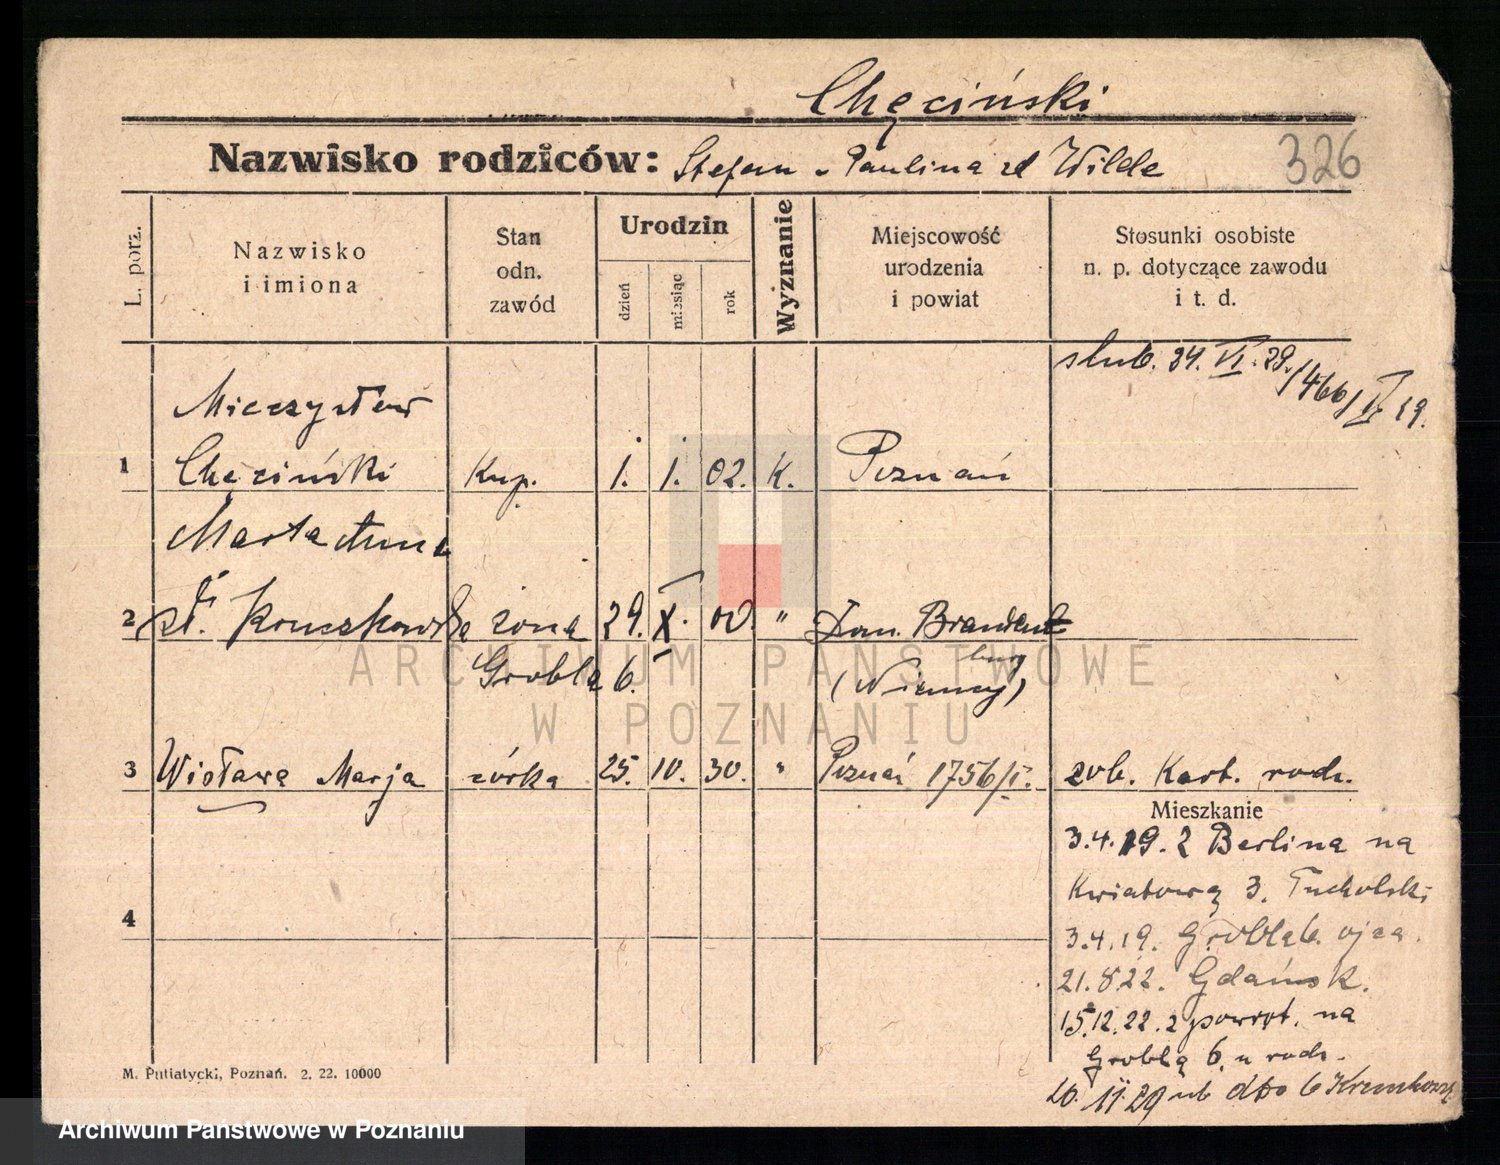 Chęciński
Nazwisko rodziców: Stefan - Paulina zd Wilde
326
L. porz.
Nazwisko
i imiona
Stan
odn.
zawód
Urodzin
dzień
miesiąc
rok
Wyznanie
Miejscowość
urodzenia
i powiat
Stosunki osobiste
n. p. dotyczące zawodu
i t. d.
ślub. 24. VI. 29. /466/
Mieczysław
1 Chęciński Kup. 1. 1. 02. K. Poznań
Marta Anna
2 Kruczkowska żona 29. X. 00. " Dom. Branden
burg
Groblą 6. (Niemcy)
3 Wisława Marja córka 25. 10. 30. " Poznań 1756/I. zob. Kart. rodz.
Mieszkanie
3.4.19. z Berlina na
Kwiatową 3. Tucholski
3.4.19. Groblą 6. ojca.
4
21.8.22. Gdańsk.
15.12.22. z powrot. na
Groblą 6. u rodz.
26. 11. 29 dto 6
M. Putiatycki, Poznań. 2. 22. 10000
ARCHIWUM PAŃSTWOWE
W POZNANIU
Archiwum Państwowe w Poznaniu